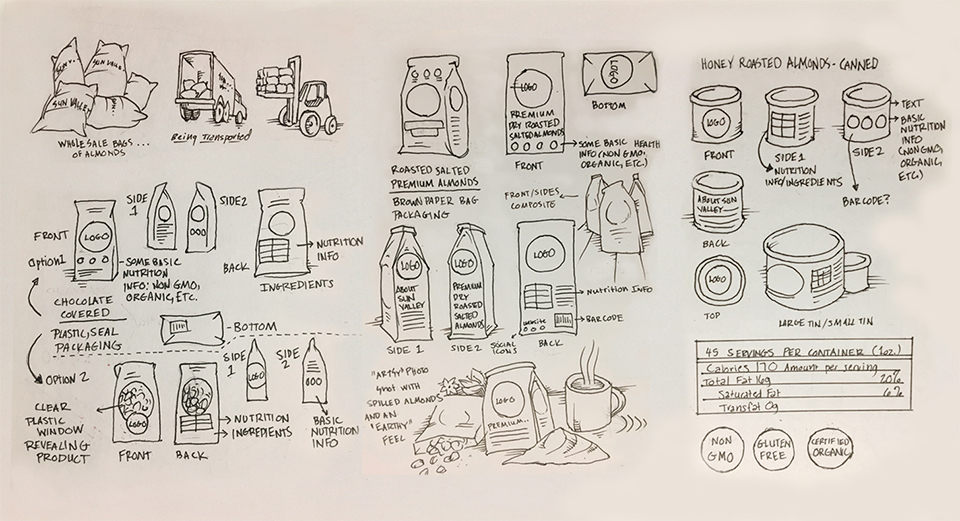 SUN VALLEY
SUN VALLEY
WHOLESALE BAGS...
OF ALMONDS
Being Transported
SIDE
1
SIDE2
FRONT
Option1
LOGO
SOME BASIC
NUTRITION
INFO: NON GMO,
ORGANIC, ETC.
BACK
NUTRITION
INFO
INGREDIENTS
CHOCOLATE
COVERED
PLASTIC, SEAL
PACKAGING
BOTTOM
OPTION 2
SIDE
1
LOGO
SIDE
2
CLEAR
PLASTIC
WINDOW
REVEALING
PRODUCT
LOGO
FRONT
BACK
NUTRITION
INGREDIENTS
BASIC
NUTRITION
INFO
ROASTED SALTED
PREMIUM ALMONDS
BROWN PAPER BAG
PACKAGING
LOGO
PREMIUM
DRY ROASTED
SALTED ALMONDS
FRONT
SOME BASIC HEALTH
INFO (NON GMO,
ORGANIC, ETC.)
LOGO
BOTTOM
FRONT/SIDES
COMPOSITE
LOGO
ABOUT
SUN
VALLEY
SIDE 1
LOGO
PREMIUM
DRY
ROASTED
SALTED
ALMONDS
SIDE2
LOGO
WEBSITE
SOCIAL
ICONS
BACK
Nutrition Info
BARCODE
"ARTSY" PHOTO
SHOT WITH
SPILLED ALMONDS
AND AN
"EARTHY"
FEEL
LOGO
PREMIUM..
HONEY ROASTED ALMONDS - CANNED
LOGO
FRONT
SIDE 1
NUTRITION
INFO/INGREDIENTS
SIDE 2
TEXT
BASIC
NUTRITION
INFO
(NON GMO,
ORGANIC,
ETC)
BARCODE?
ABOUT SUN
VALLEY
BACK
LOGO
TOP
LARGE TIN/SMALL TIN
45 SERVINGS PER CONTAINER (1oz.)
Calories 170 Amount per serving
Total Fat 16g 20%
Saturated Fat 6%
Transfat 0g
NON
GMO
GLUTEN
FREE
CERTIFIED
ORGANIC